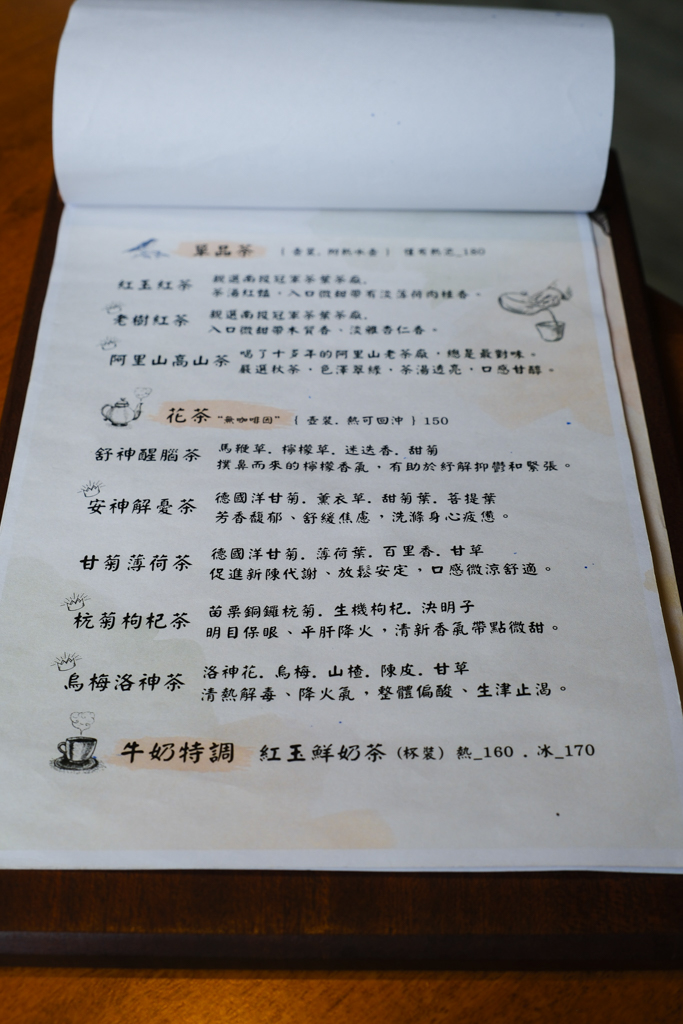 單品茶 { 壺裝. 附熱水壺 } 僅有熱泡_180
紅玉紅茶 親選南投冠軍茶葉茶廠.
茶湯紅豔，入口微甜帶有淡薄荷肉桂香。
老樹紅茶 親選南投冠軍茶葉茶廠.
入口微甜帶木質香、淡雅杏仁香。
阿里山高山茶 喝了十多年的阿里山老茶廠，總是最對味。
嚴選秋茶，色澤翠綠，茶湯透亮，口感甘醇。
花茶 "無咖啡因" { 壺裝. 熱可回沖 } 150
舒神醒腦茶 馬鞭草. 檸檬草. 迷迭香. 甜菊
撲鼻而來的檸檬香氣，有助於紓解抑鬱和緊張。
安神解憂茶 德國洋甘菊. 薰衣草. 甜菊葉. 菩提葉
芳香馥郁、舒緩焦慮，洗滌身心疲憊。
甘菊薄荷茶 德國洋甘菊. 薄荷葉. 百里香. 甘草
促進新陳代謝、放鬆安定，口感微涼舒適。
杭菊枸杞茶 苗栗銅鑼杭菊. 生機枸杞. 決明子
明目保眼、平肝降火，清新香氣帶點微甜。
烏梅洛神茶 洛神花. 烏梅. 山楂. 陳皮. 甘草
清熱解毒、降火氣，整體偏酸、生津止渴。
牛奶特調 紅玉鮮奶茶 (杯裝) 熱_160 . 冰_170